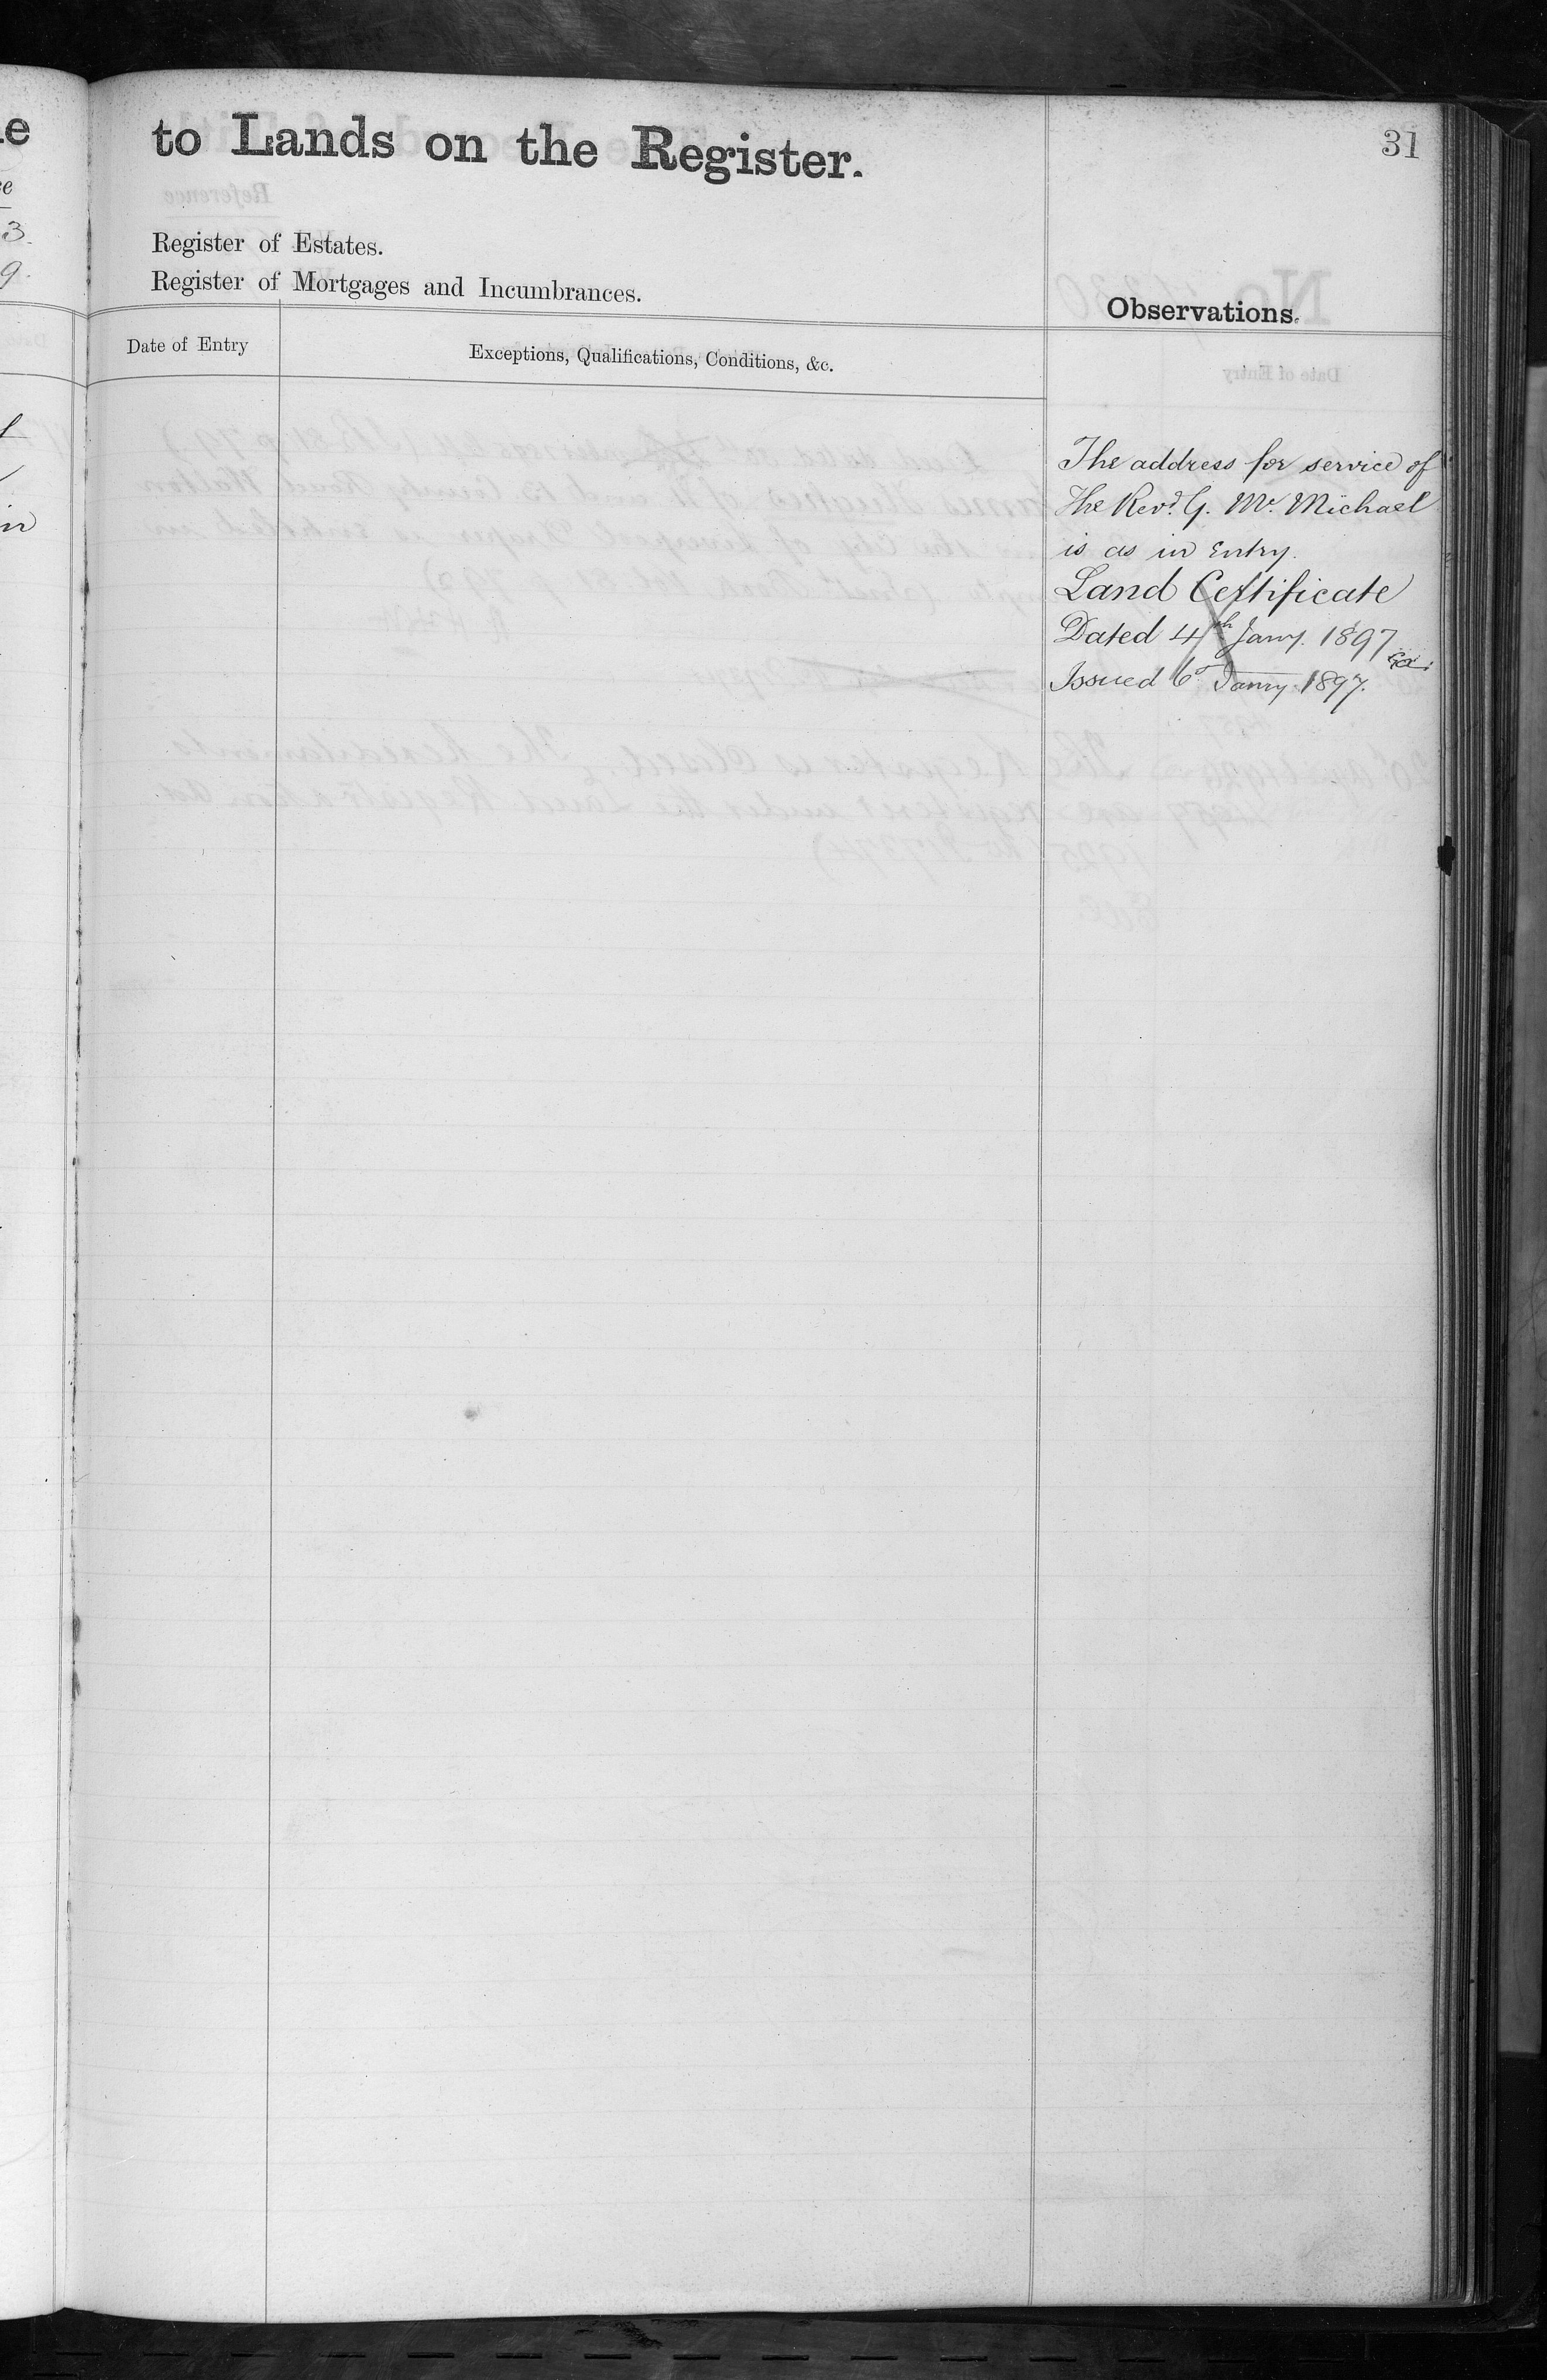 31
to Lands on the Register.
Register of Estates.
Register of Mortgages and Incumbrances.
Observations.
Date of Entry
Exceptions, Qualifications, Conditions, &c.
The address for service of
The Revd. G. Mc. Michael
is as in Entry.
Land Certificate
Dated 4th Jany. 1897
Issued 6th Jany. 1897.